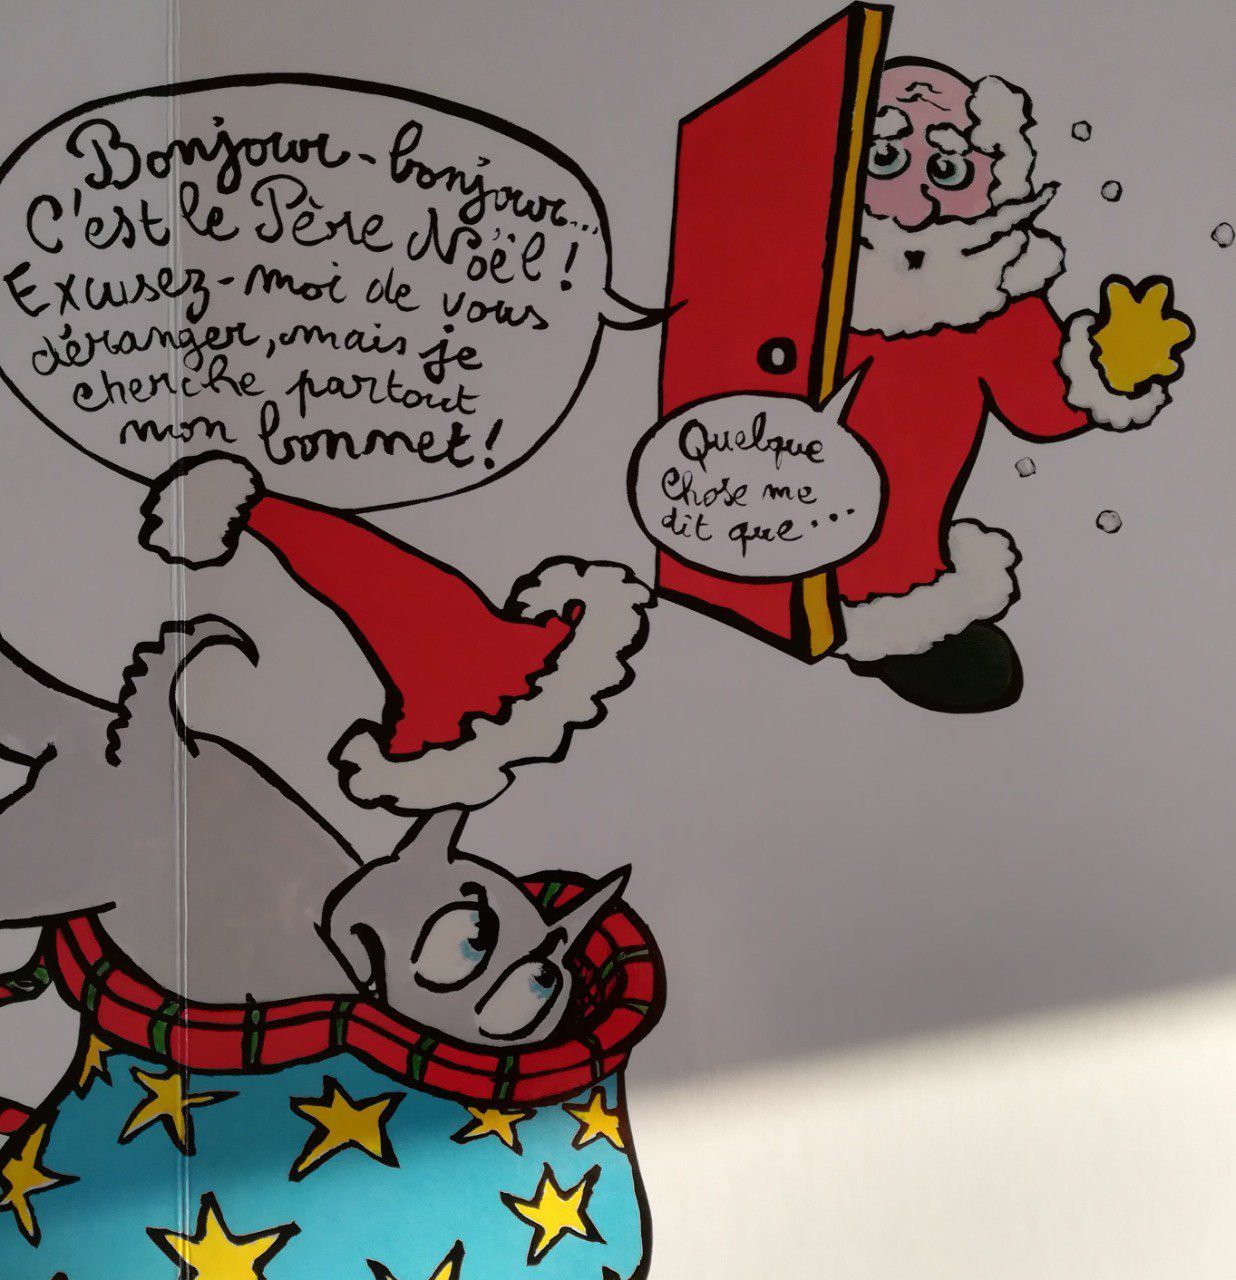 Bonjour-bonjour...
C'est le Père Noël !
Excusez-moi de vous
déranger, mais je
cherche partout
mon bonnet !
Quelque
chose me
dit que...